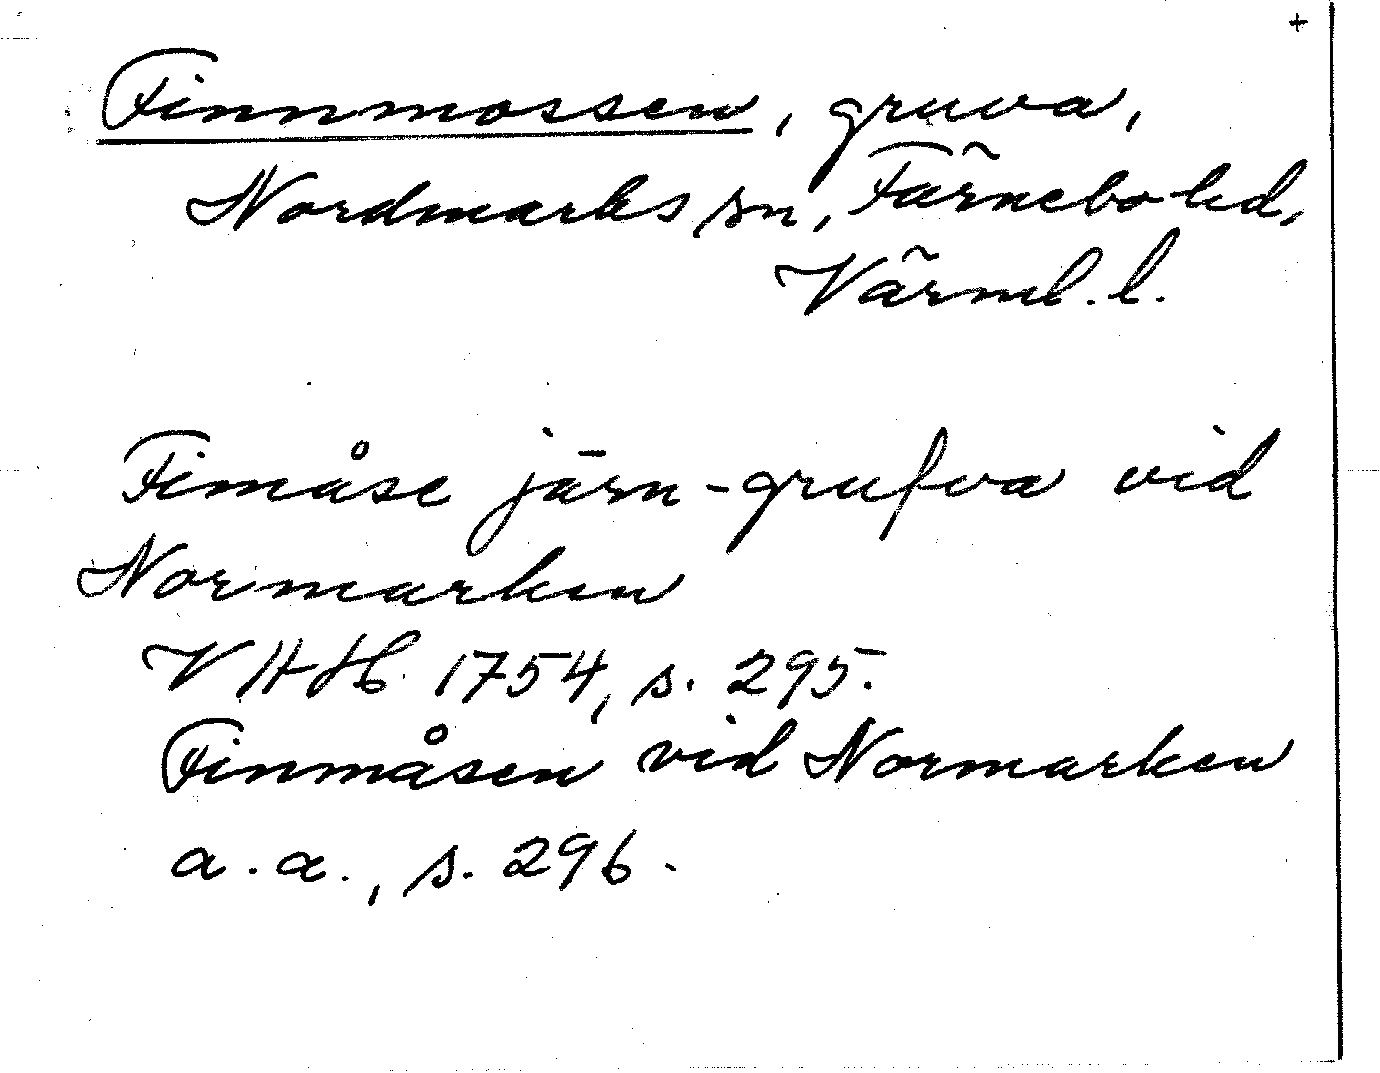 +
Finnmossen, gruva,
Nordmarks sn, Färnebo hd,
Värml. l.
Fimåse järn-grufva vid
Normarken
VHAH 1754, s. 295.
Finmåsen vid Normarken
a.a., s. 296.